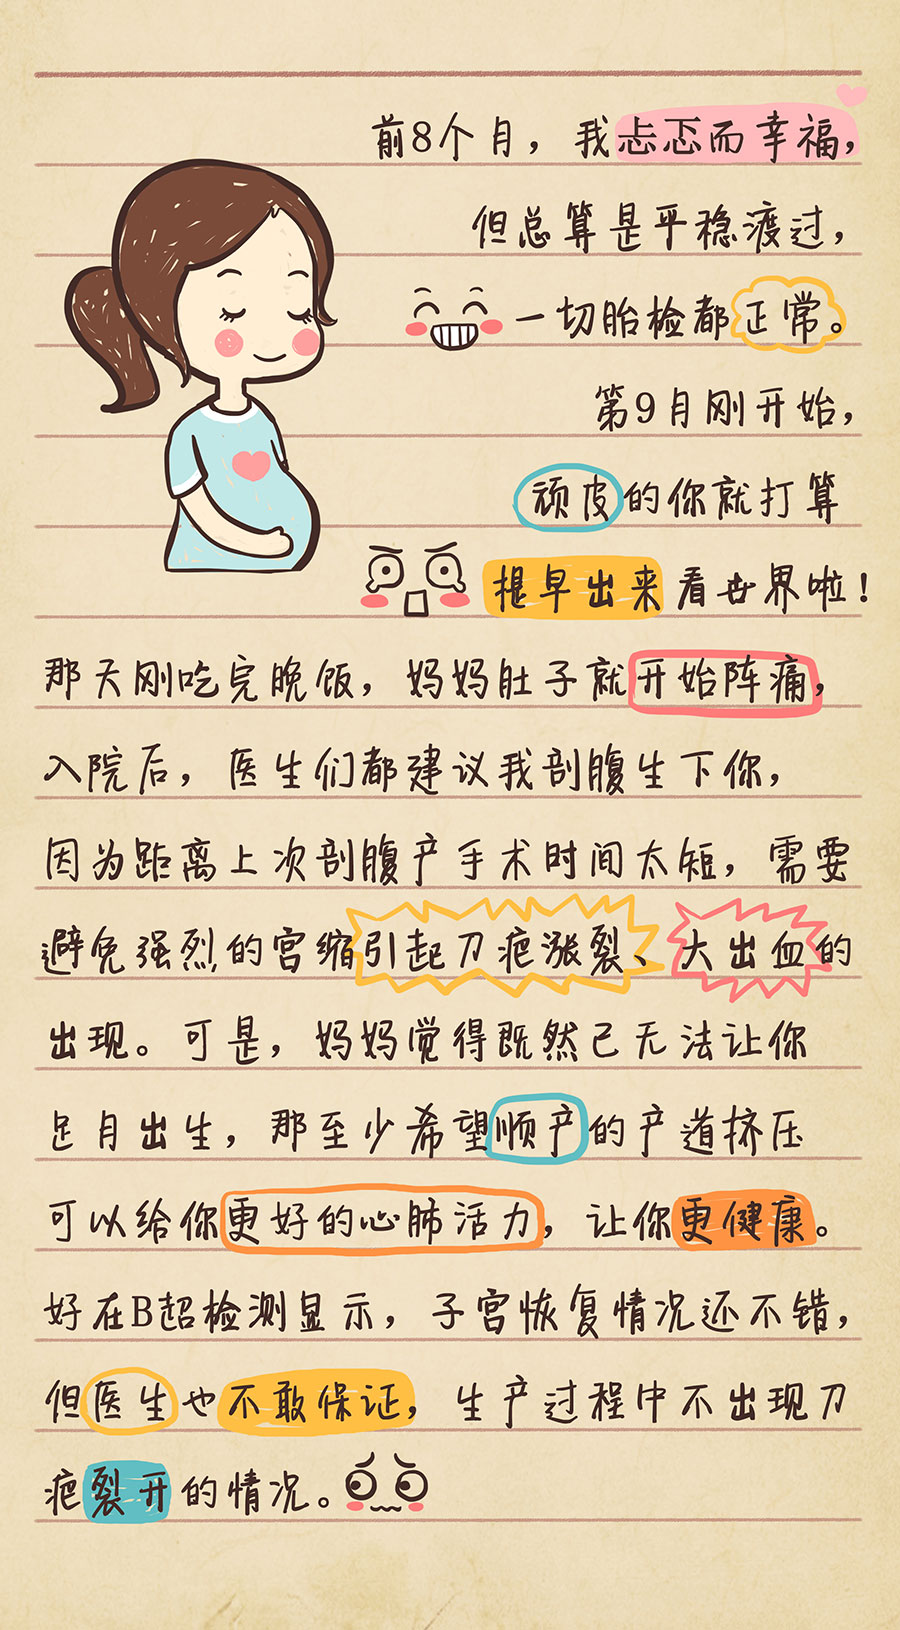 前8个月，我忐忑而幸福，
但总算是平稳渡过，
一切胎检都正常。
第9月刚开始，
顽皮的你就打算
提早出来看世界啦！
那天刚吃完晚饭，妈妈肚子就开始阵痛，
入院后，医生们都建议我剖腹生下你，
因为距离上次剖腹产手术时间太短，需要
避免强烈的宫缩引起刀疤涨裂、大出血的
出现。可是，妈妈觉得既然已无法让你
足月出生，那至少希望顺产的产道挤压
可以给你更好的心肺活力，让你更健康。
好在B超检测显示，子宫恢复情况还不错，
但医生也不敢保证，生产过程中不出现刀
疤裂开的情况。